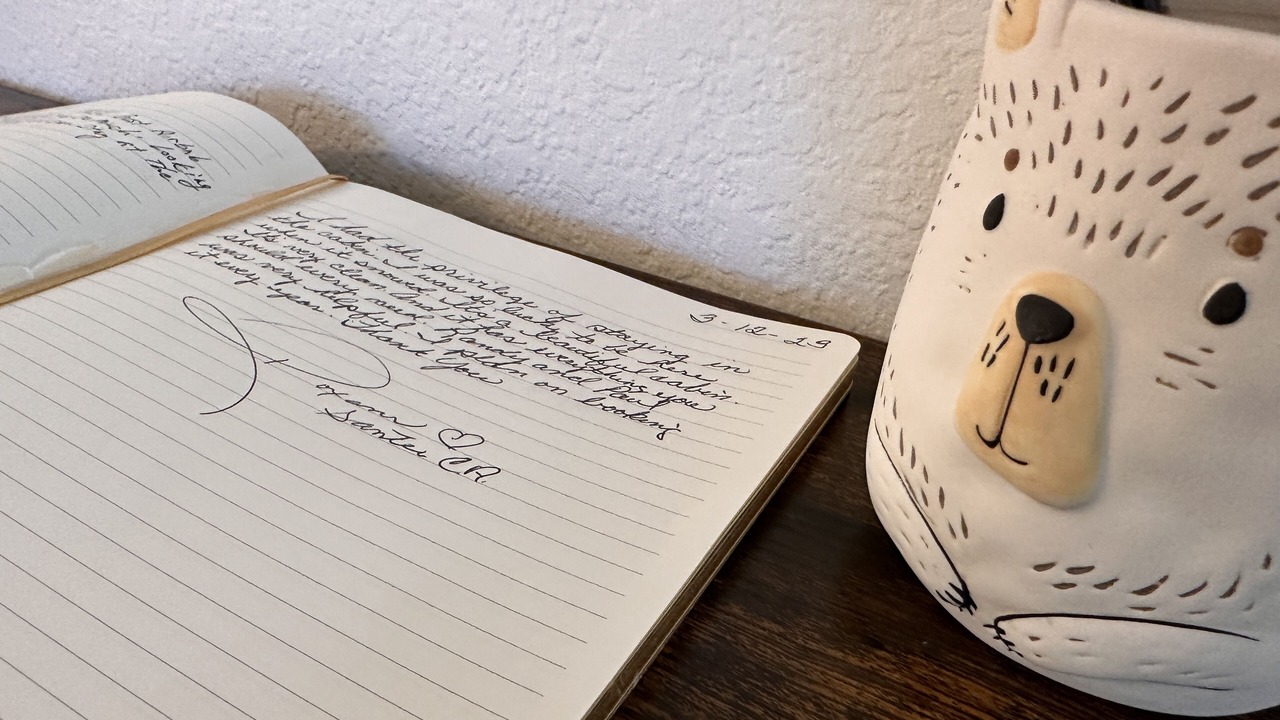 looking
at the
3-12-29
I had the privilege of staying in
the cabin. I was so lucky to be here
when it snowed. Its a beautiful cabin.
Its very clean and it has everything you
should ever need. and
was very helpful. I plan on booking
it every year. Thank You
Roxann ♡
Santee CA